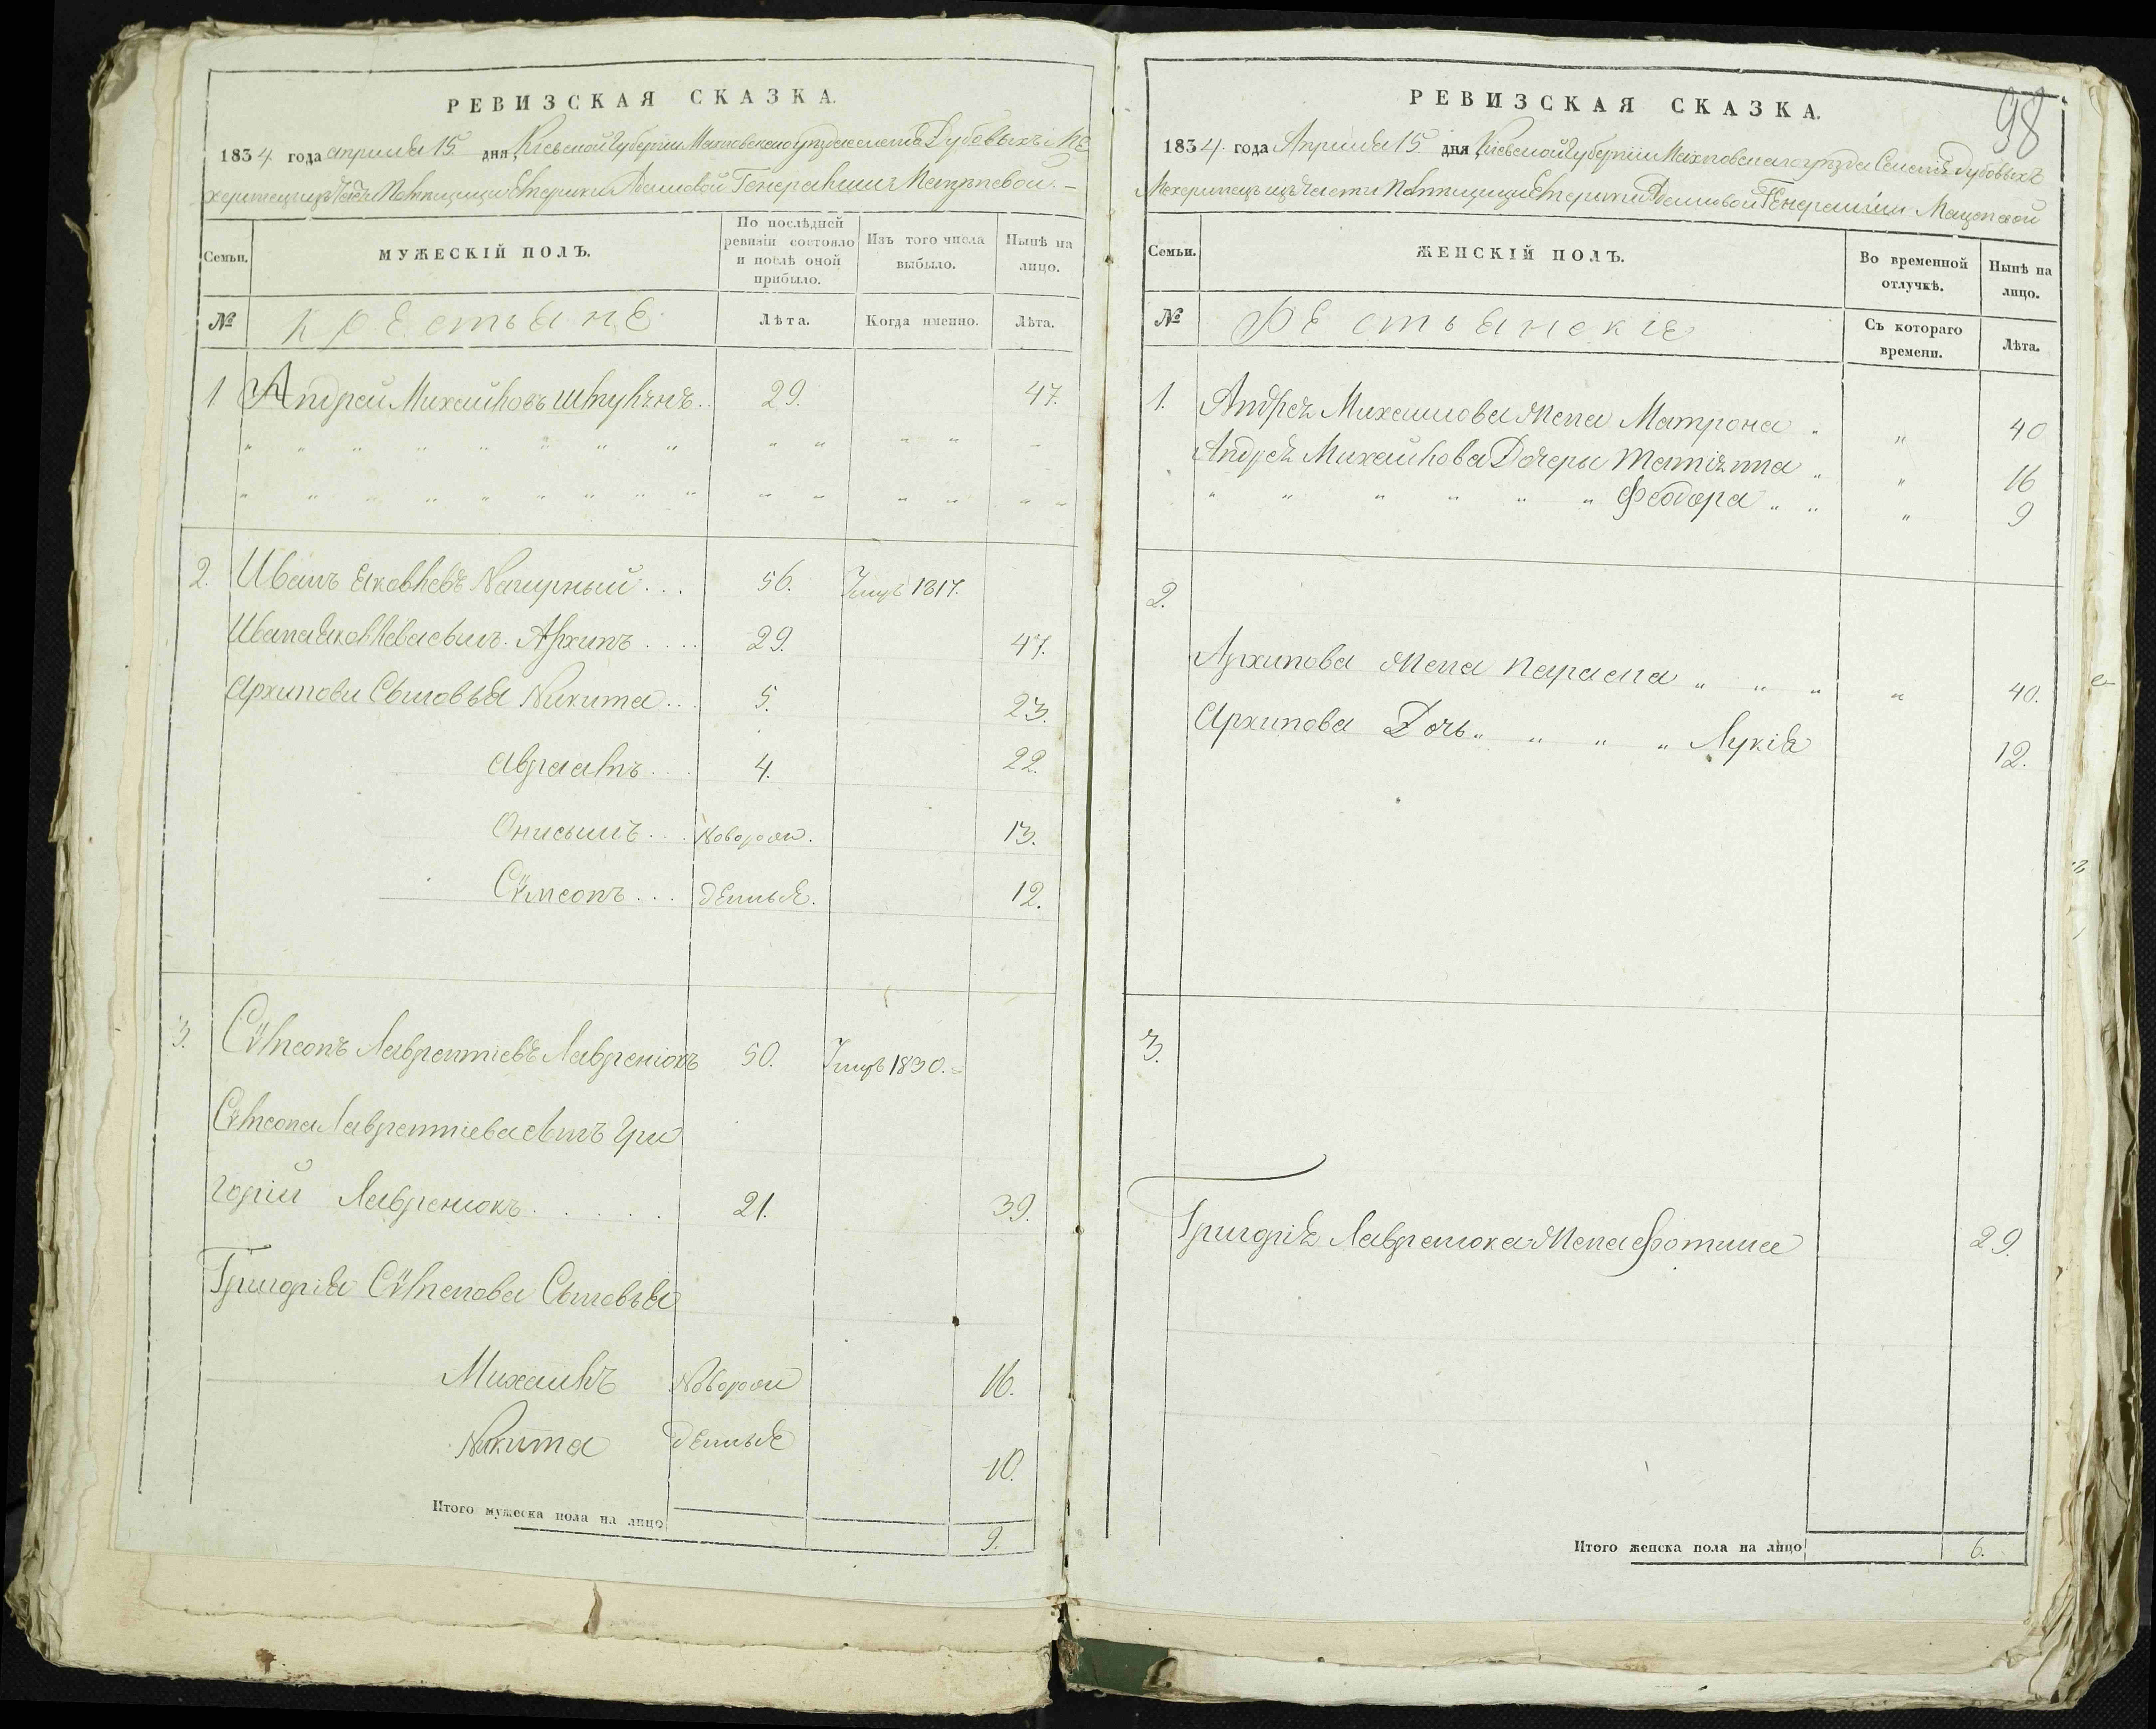 РЕВИЗСКАЯ СКАЗКА.
1834 года априля 15 дня Киевской Губернии Махновского уѣзда селенія Дубовыхъ Ме
херинецъ изъ части Генеральши
Семьи. МУЖЕСКІЙ ПОЛЪ. По послѣдней ревизіи состояло и послѣ оной прибыло. Изъ того числа выбыло. Нынѣ на лицо.
№ Крестьяне Лѣта. Когда именно. Лѣта.
1 Андрей Михайловъ 29. 47.
2. Иванъ Яковлевъ Нагирный 56. Умеръ 1817.
Ивана Яковлева сынъ Архипъ 29. 47.
Архипови Сыновья Никита 5. 23.
Авраамъ 4. 22.
Онисимъ Новорож. 13.
Сѵмеонъ денные. 12.
3. Сѵмеонъ Лаврентіевъ Лавренюкъ 50. Умеръ 1830.
Сѵмеона Лаврентіева сынъ Гри
горій Лавренюкъ 21. 39.
Григорія Сѵменова Сыновья
Михаилъ Новорож 16.
Никита денные 10.
Итого мужеска пола на лицо 9.
98
РЕВИЗСКАЯ СКАЗКА.
1834. года Априля 15 дня Киевской Губерніи Махновскаго уѣзда Селенія Дубовыхъ
Мехеринецъ изъ части Генеральши
Семьи. ЖЕНСКІЙ ПОЛЪ. Во временной отлучкѣ. Нынѣ на лицо.
№ Съ котораго времени. Лѣта.
1. Андрея Михаилова Жена Матрона " 40
Андрея Михайлова Дочеры Татіянна " 16
" " " " " " Феодора " " " 9
2.
Архипова Жена Параска " " " " 40.
Архипова Дочь " " " " Лукія 12.
3.
Григорія Лавренюка Жена Фотина 29.
Итого женска пола на лицо 6.